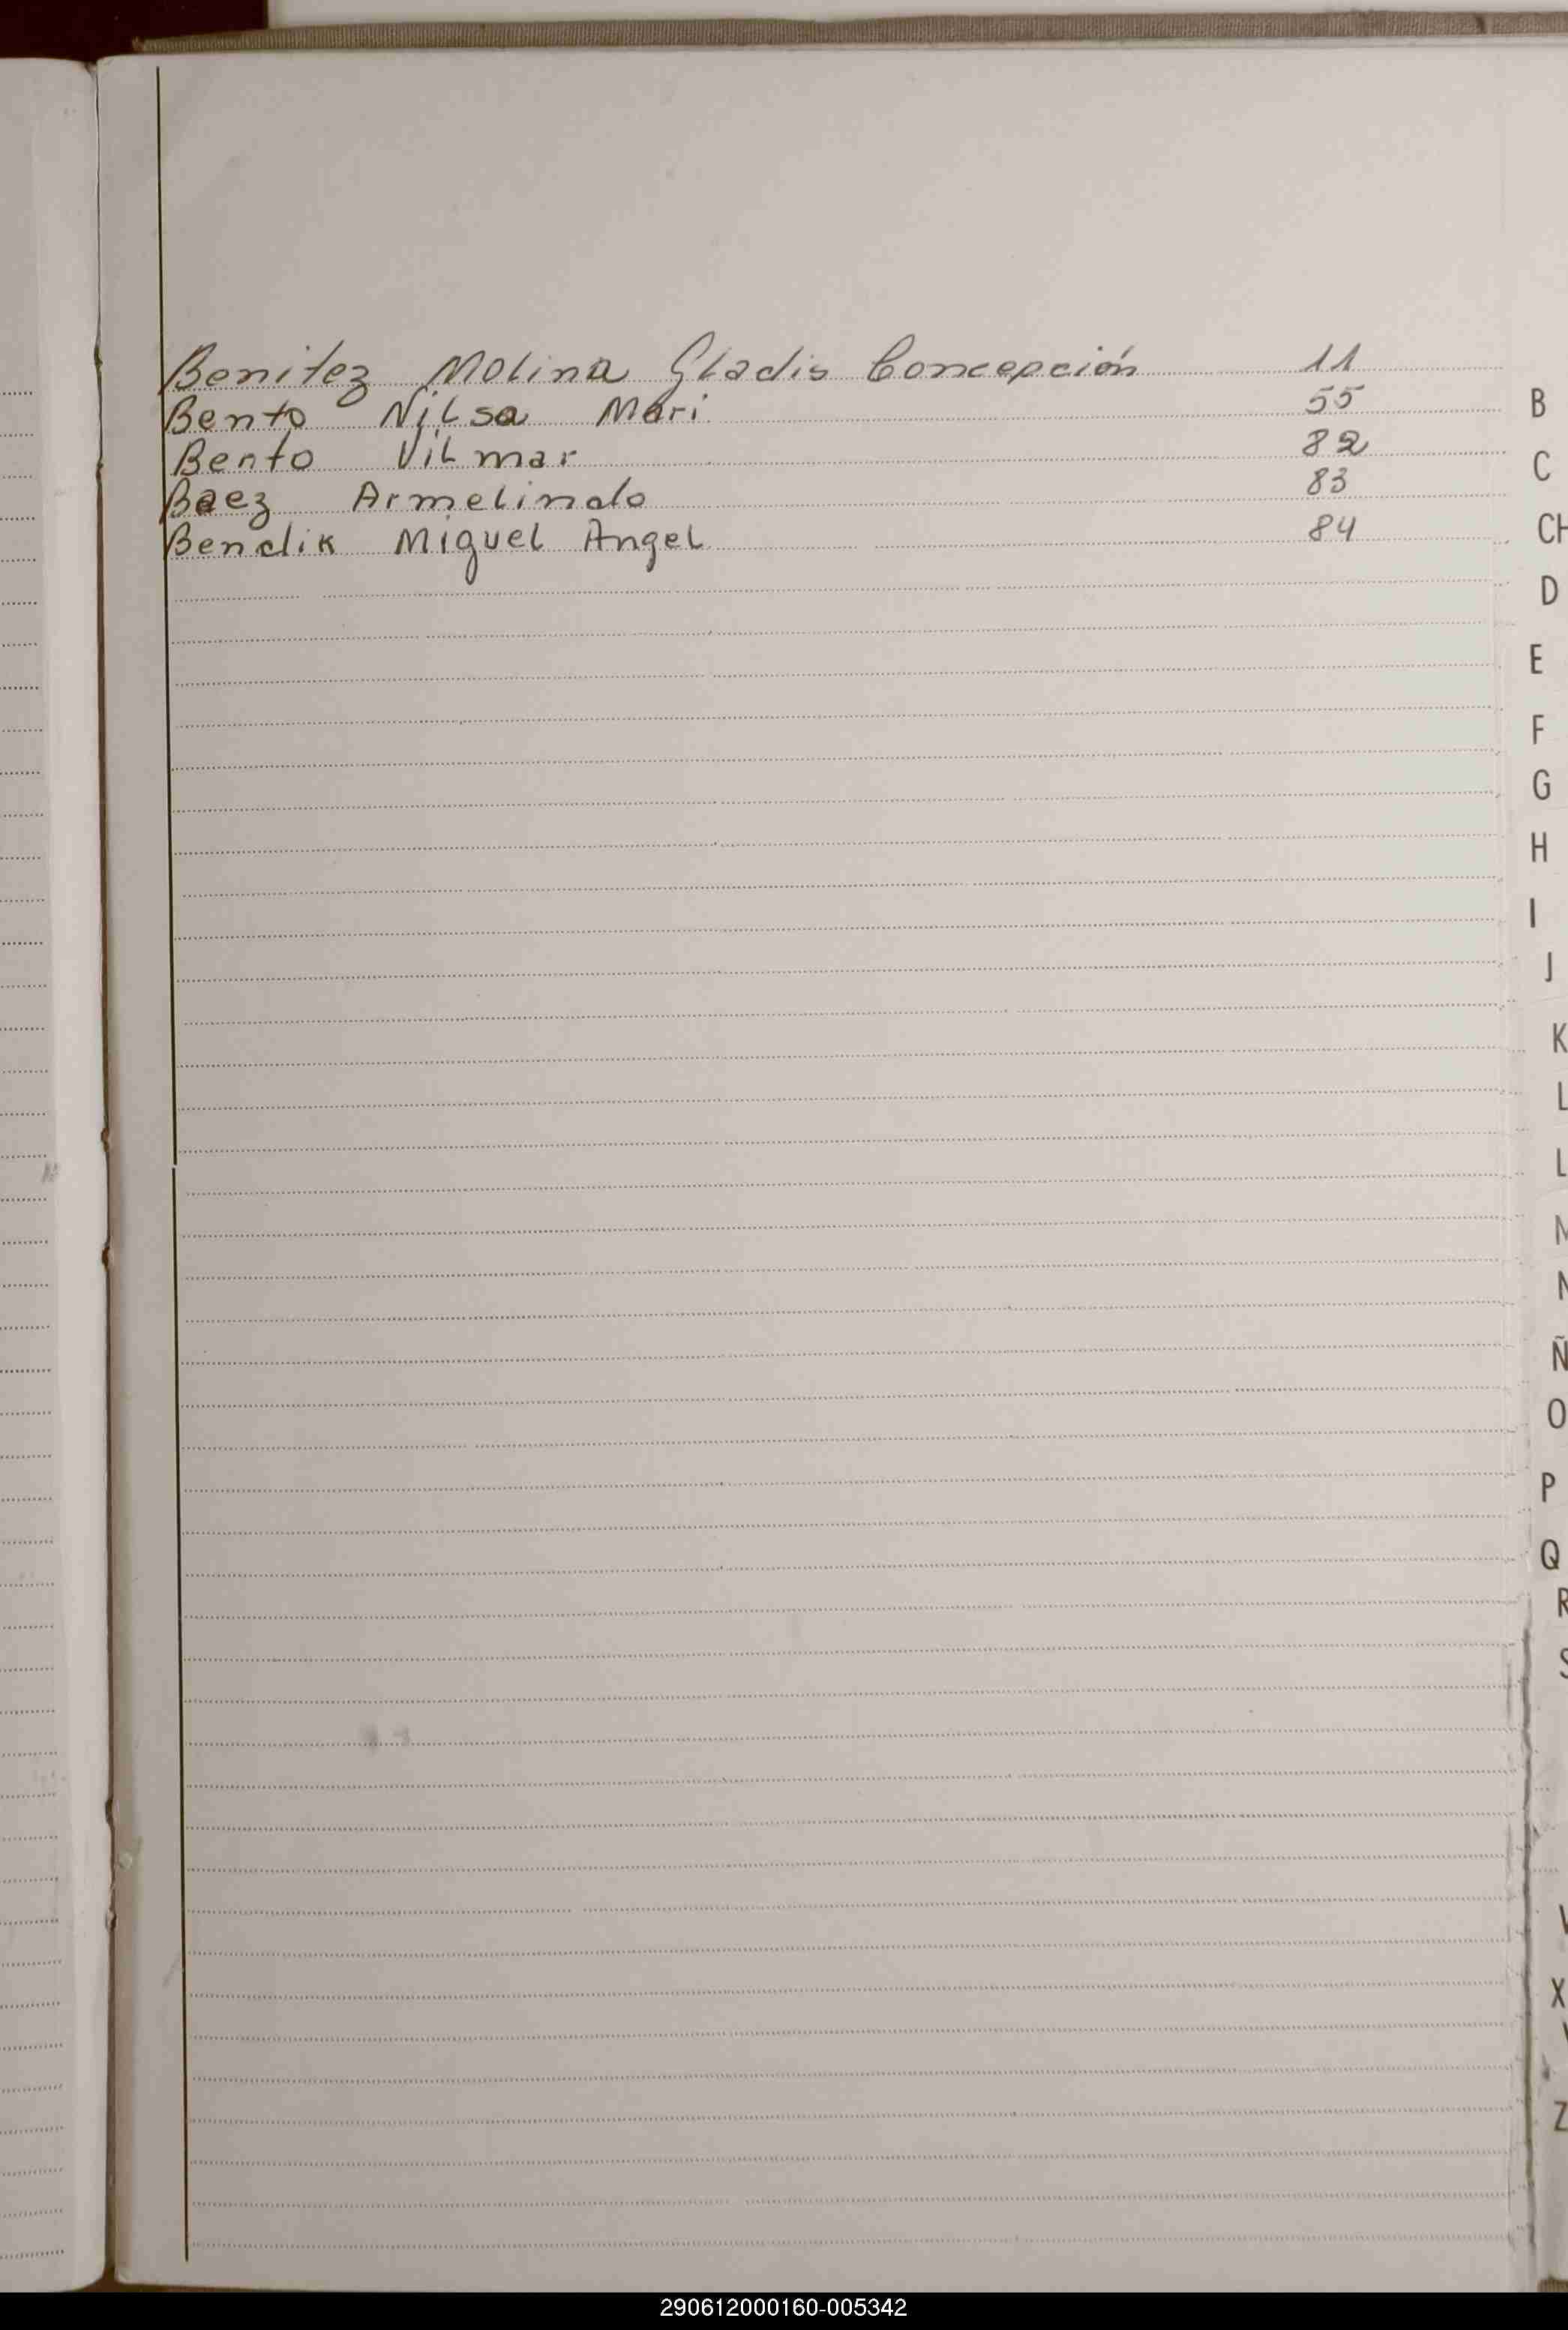 Benitez Molina Gladis Concepción 11
Bento Nilsa Mari 55
Bento Vilmar 82
Baez Armelindo 83
Bendik Miguel Angel 84
B
C
CH
D
E
F
G
H
I
J
K
L
L
M
N
Ñ
O
P
Q
R
S
X
Z
290612000160-005342